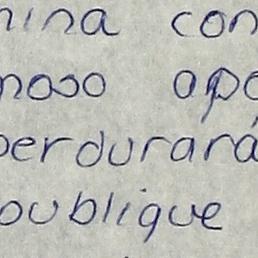 nina con
noso apo
perdurará
publique